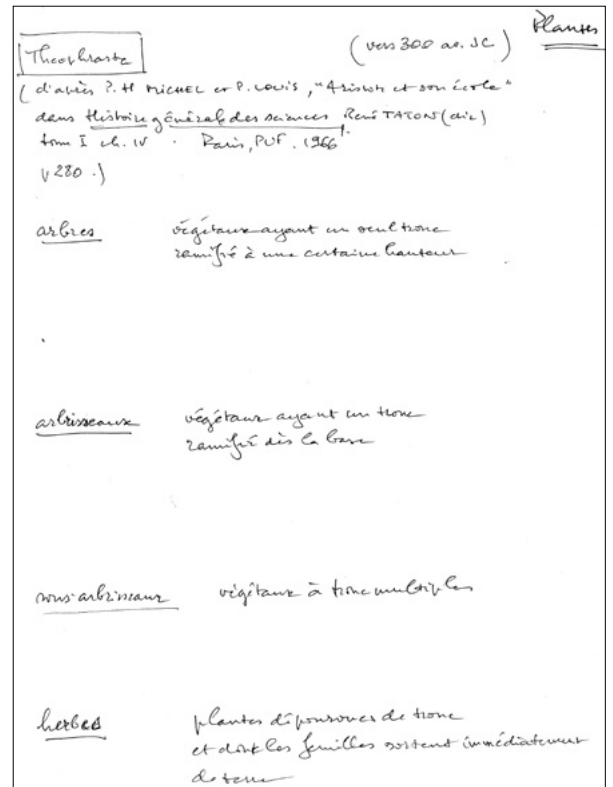 Plantes
Théophraste (vers 300 av. JC)
(d'après P. H MICHEL et P. LOUIS, "Aristote et son école"
dans Histoire générale des sciences René TATON (dir)
tome I ch. IV . Paris, PUF. 1966
p 280.)
arbres végétaux ayant un seul tronc
ramifié à une certaine hauteur
arbrisseaux végétaux ayant un tronc
ramifié dès la base
sous-arbrisseaux végétaux à troncs multiples
herbes plantes dépourvues de tronc
et dont les feuilles sortent immédiatement
de terre